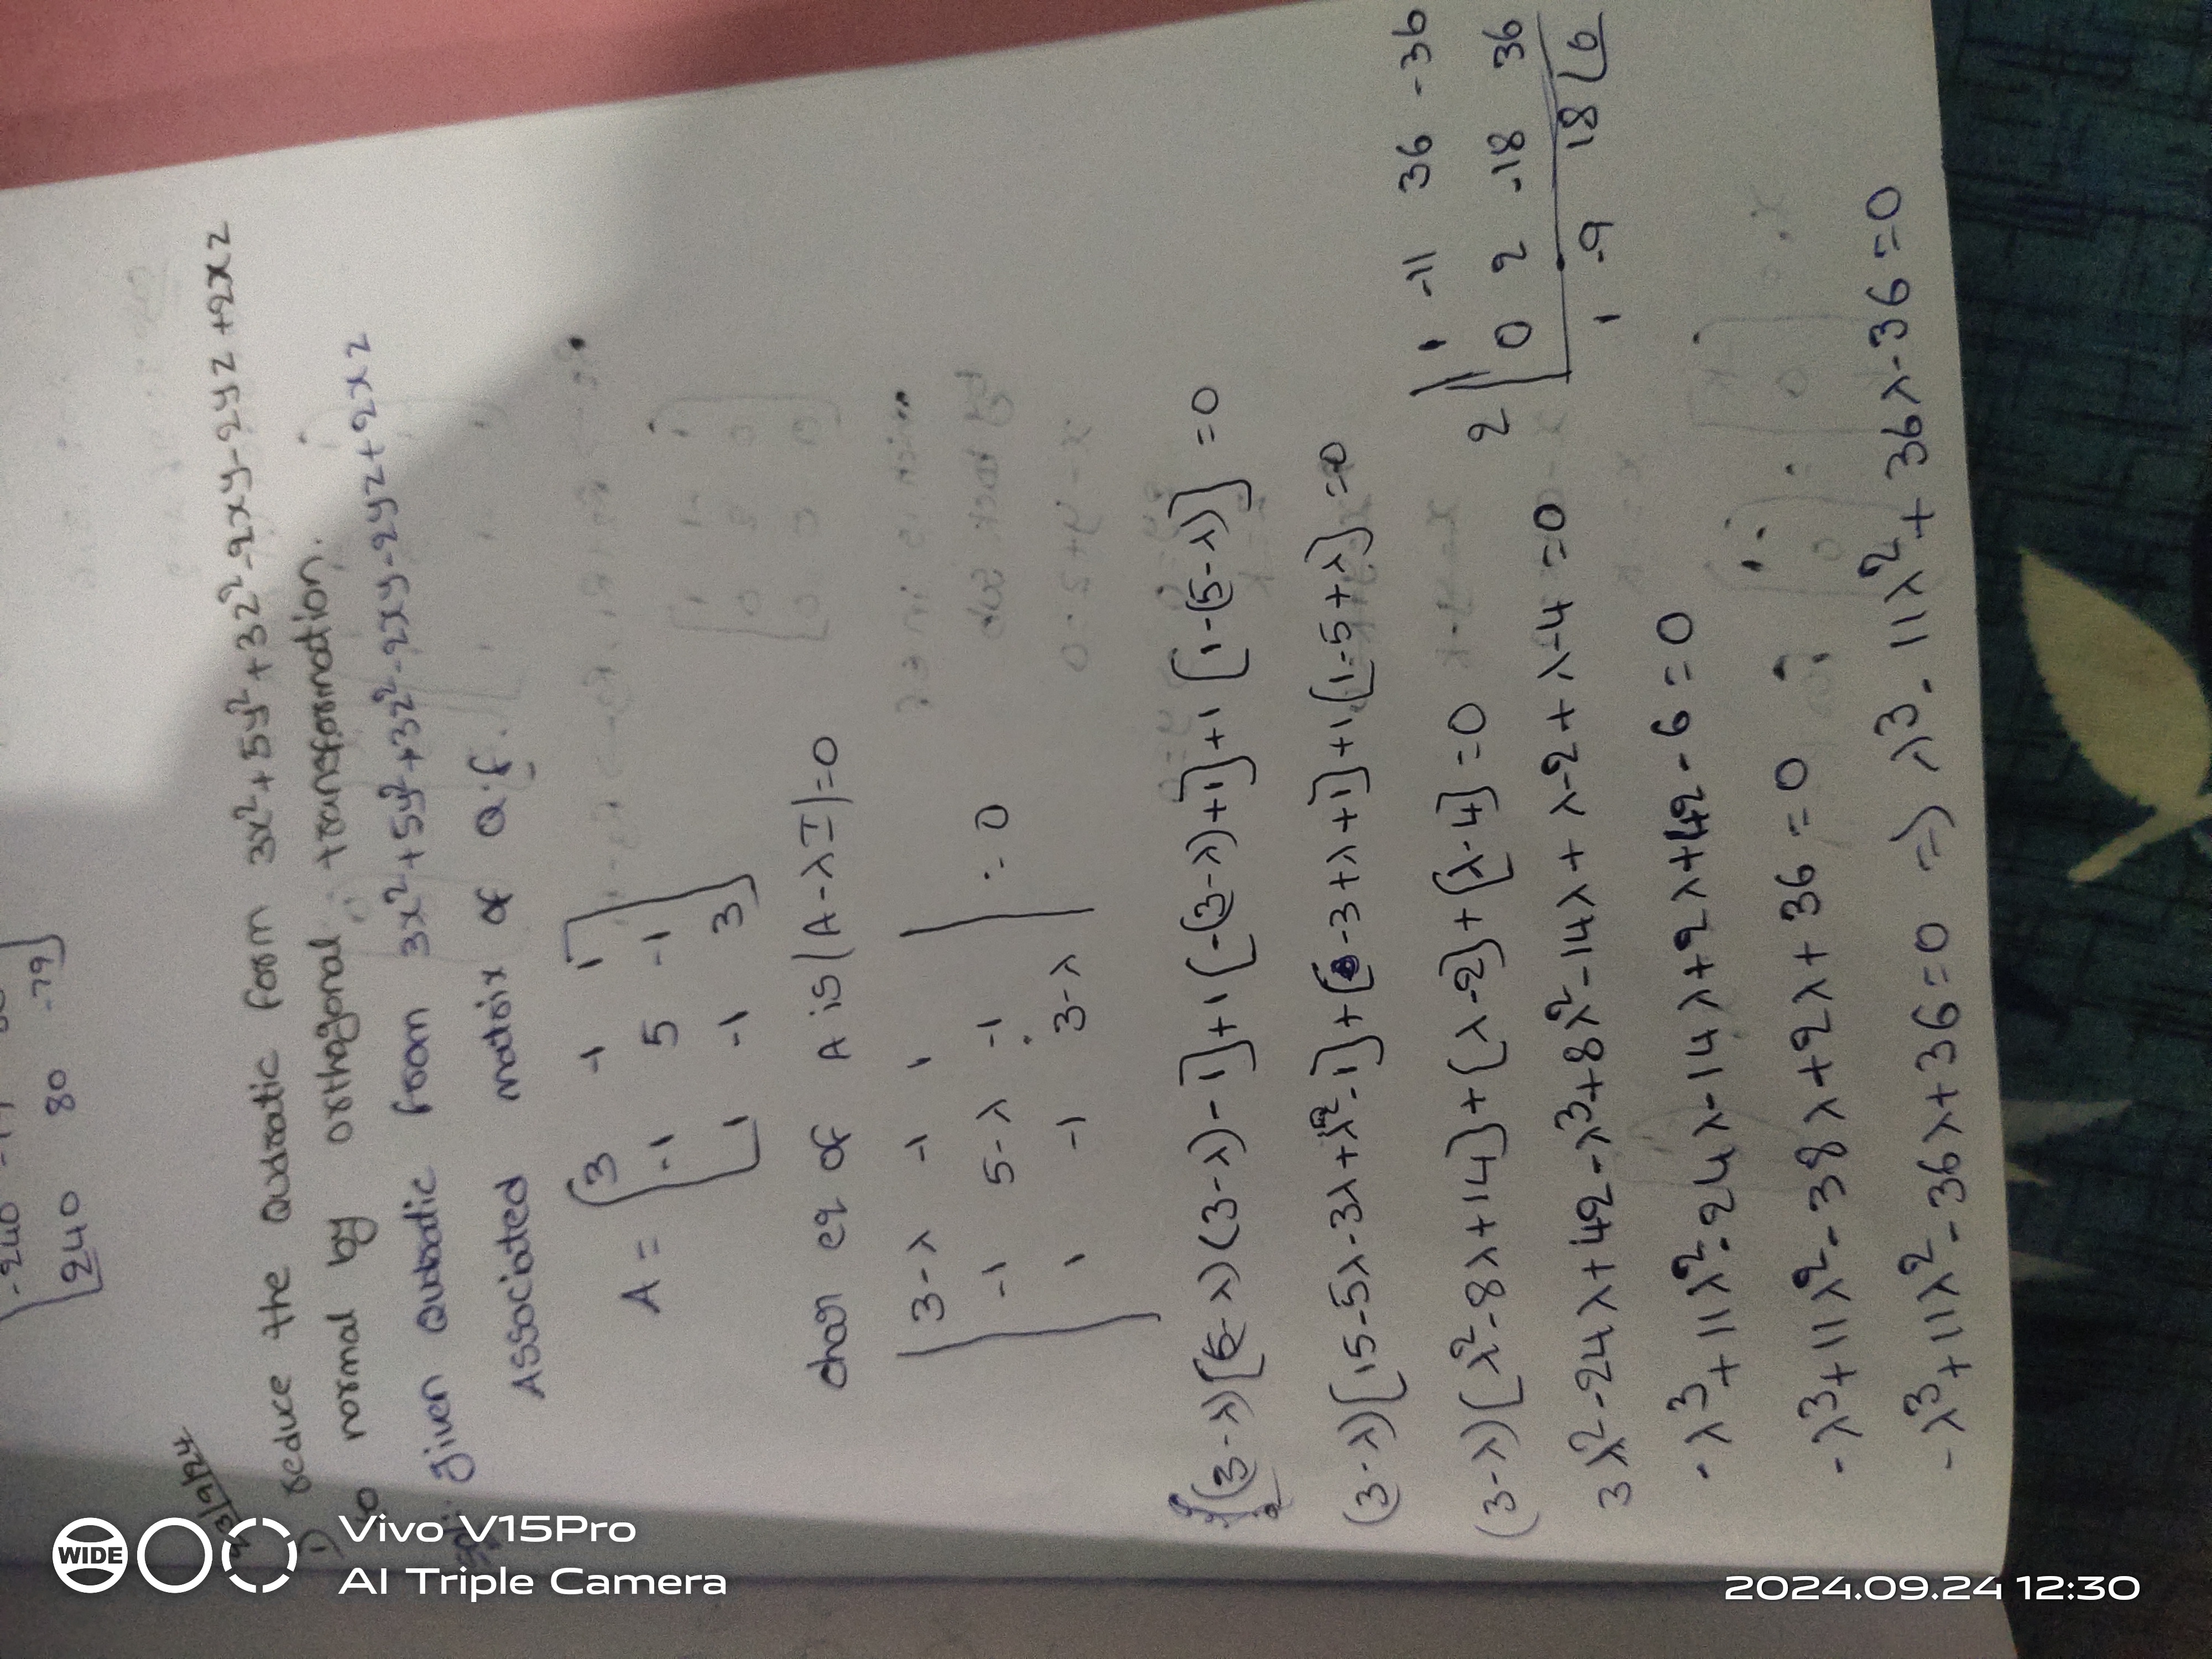 -240
240 80 -79
23/9/24
1) reduce the Qudratic form 3x²+5y²+3z²-2xy-2yz+2xz
to normal by orthogonal transformation.
Sol: Given Qudratic from 3x²+5y²+3z²-2xy-2yz+2xz
Associated matrix of Q.f.
A = [3 -1 1
-1 5 -1
1 -1 3]
char eq of A is |A-λI|=0
|3-λ -1 1
-1 5-λ -1
1 -1 3-λ| = 0
(3-λ)[(5-λ)(3-λ)-1]+1[-(3-λ)+1]+1[1-(5-λ)]=0
(3-λ)[15-5λ-3λ+λ²-1]+[-3+λ+1]+1[1-5+λ]=0
(3-λ)[λ²-8λ+14]+[λ-2]+[λ-4]=0
3λ²-24λ+42-λ³+8λ²-14λ+λ-2+λ-4=0
-λ³+11λ²-24λ-14λ+2λ+42-6=0
-λ³+11λ²-38λ+2λ+36=0
-λ³+11λ²-36λ+36=0 => λ³-11λ²+36λ-36=0
1 -11 36 -36
2 0 2 -18 36
1 -9 18 0
Vivo V15Pro
AI Triple Camera
WIDE
2024.09.24 12:30